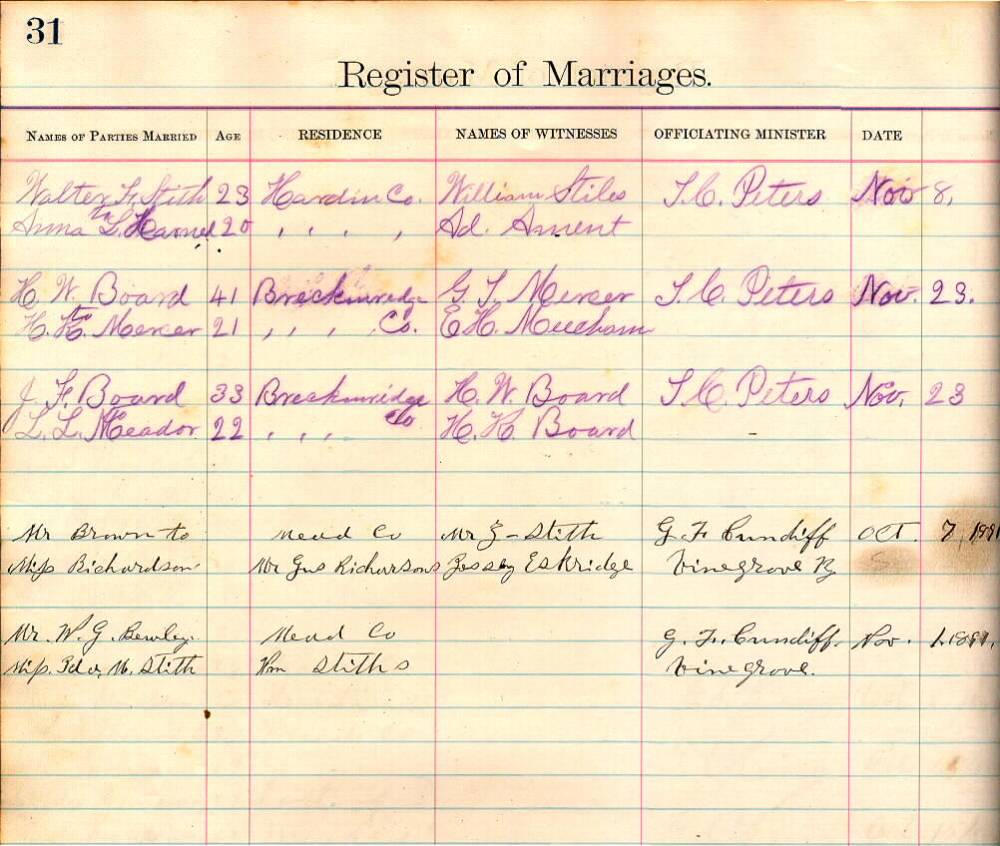 31
Register of Marriages.
NAMES OF PARTIES MARRIED AGE RESIDENCE NAMES OF WITNESSES OFFICIATING MINISTER DATE
Walter F. Stith 23 Hardin Co. William Stiles T. C. Peters Nov 8,
to
Anna L. Harned 20 , , , , Ad. Ament
H. W. Board 41 Breckinridge G. T. Mercer T. C. Peters Nov. 23.
to
H. H. Mercer 21 , , , Co. E H. Meecham
J. F. Board 33 Breckinridge H. W. Board T C. Peters Nov. 23
to Co
L. L. Meador 22 , , , H. H. Board
Mr Brown to Mead Co Mr G - Stith G. F. Cundiff OCT. 7,
Miss Richardson Mr Gus Richarsons Eskridge Vinegrove Ky
Mr. W. G. Bewley. Mead Co G. F. Cundiff. Nov. 1.
Miss. M. Stith Wm Stiths Vinegrove.